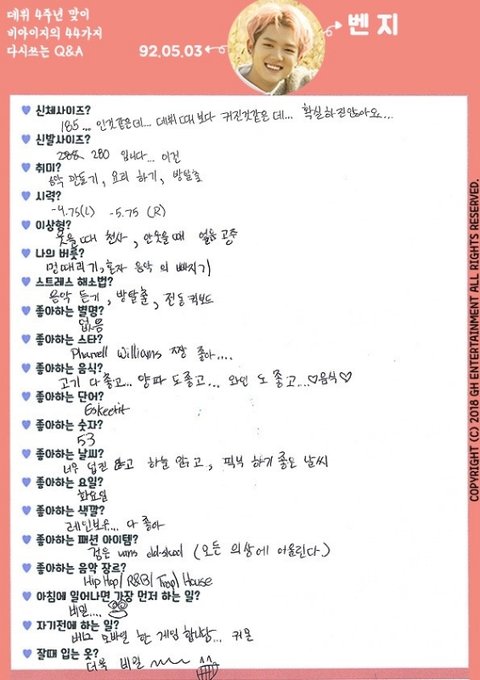 데뷔 4주년 맞이
비아이지의 44가지
다시쓰는 Q&A
92.05.03
벤지
신체사이즈?
185... 인것같은데... 데뷔 때보다 커진것같은데... 확실하진않아요...
신발사이즈?
280 입니다... 이건
취미?
음악 만들기, 요리 하기, 방탈출
시력?
-4.75(L) -5.75 (R)
이상형?
웃을때 천사, 안웃을때 얼음 공주
나의 버릇?
멍때리기, 혼자 음악 의 빠지기
스트레스 해소법?
음악 듣기, 방탈출, 전동 킥보드
좋아하는 별명?
없음
좋아하는 스타?
Pharrell Williams 짱 좋아....
좋아하는 음식?
고기 다 좋고... 양파 도좋고... 와인 도 좋고...♡음식♡
좋아하는 단어?
Eskeetit
좋아하는 숫자?
53
좋아하는 날씨?
너무 덥진 않고 하늘 맑고, 피부 하기 좋은 날씨
좋아하는 요일?
화요일
좋아하는 색깔?
레인보우... 다 좋아
좋아하는 패션 아이템?
검은 vans old-skool (모든 의상에 어울린다.)
좋아하는 음악 장르?
Hip Hop/ R&B/ Trap/ House
아침에 일어나면 가장 먼저 하는 일?
비밀....
자기전에 하는 일?
모바일 한 게임 합니다... 커몬
잘때 입는 옷?
더욱 비밀
COPYRIGHT (C) 2018 GH ENTERTAINMENT ALL RIGHTS RESERVED.